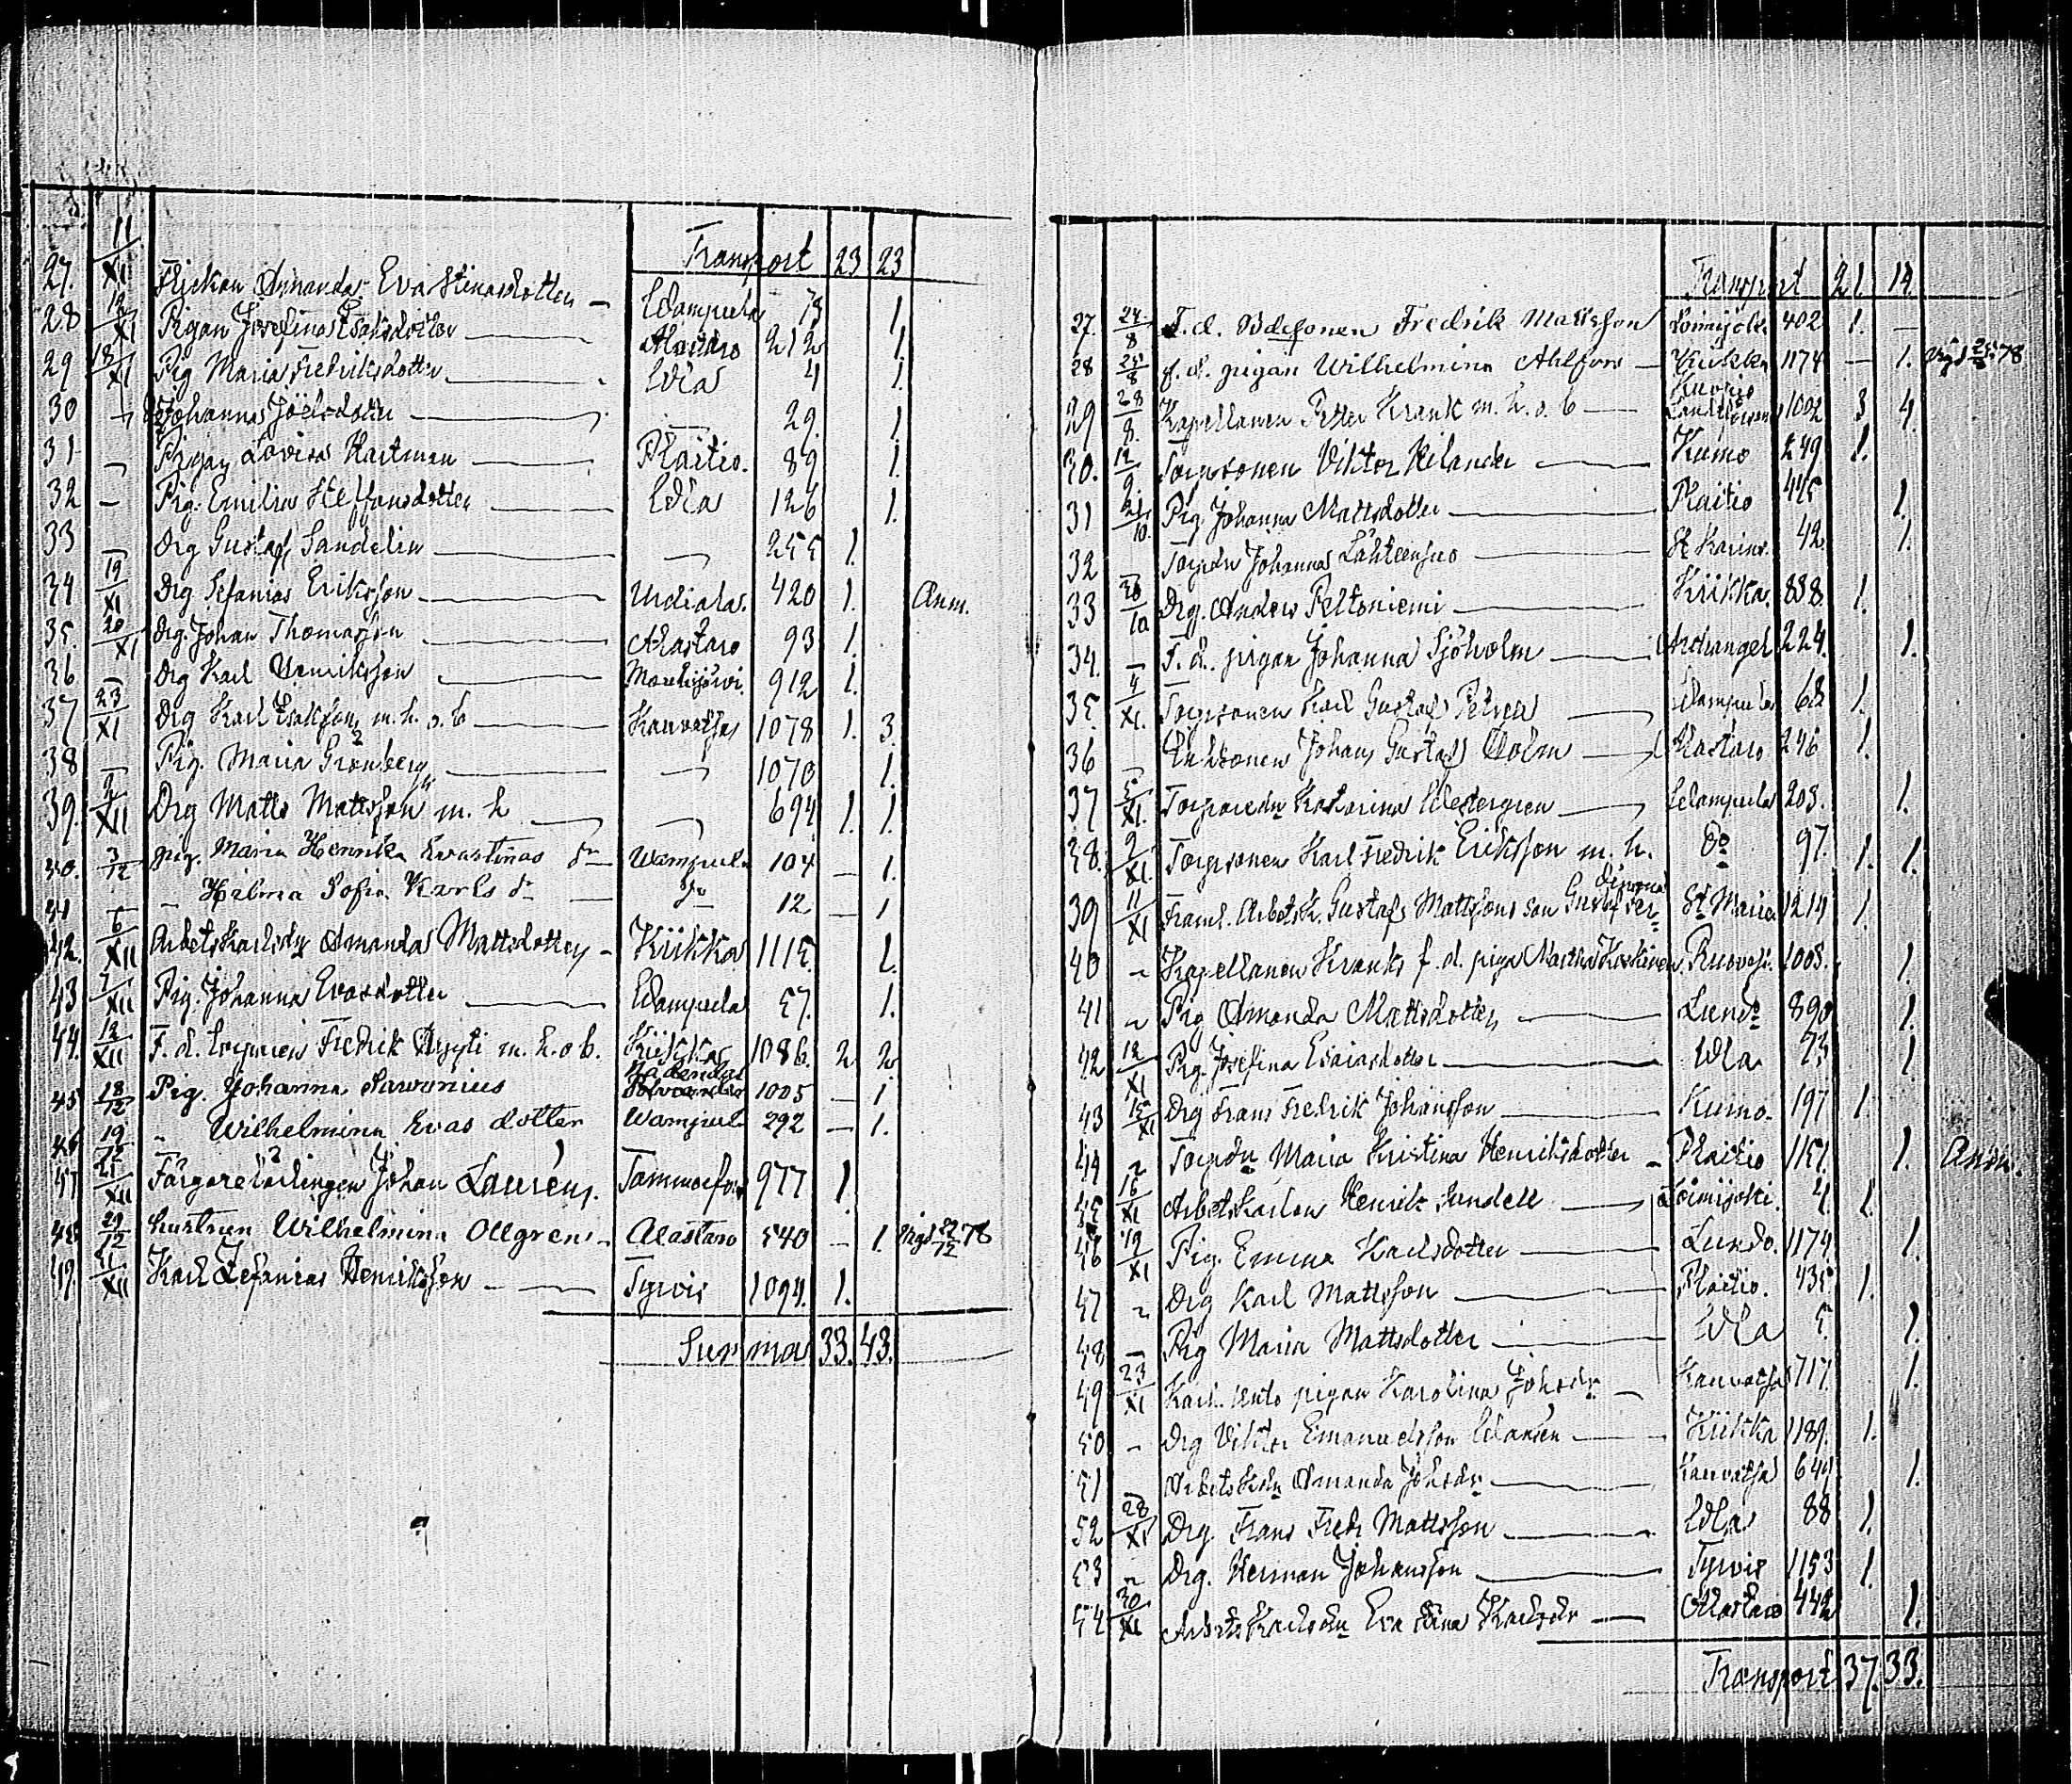 Transport 23 23
27. 11/XI Flickan Amanda Eva Stinasdotter Wampula 73 1.
28 12/XI Pigan Josefina Esaksdotter Alastaro 212 1.
29 18/XI Pig Maria Fredriksdotter Wla 4 1.
30 Johanna Joelsdotter 29. 1.
31 Pigan Lovisa Hartman Plaitis. 89 1.
32 – Pig. Emilia Steffansdotter Wla 126 1.
33 – Drg Gustaf Sandelin 255 1.
34 19/XI Drg Sefanias Eriksson Urdiala. 420 1. Anm.
35. 20/XI Drg. Johan Thomasson Alastaro 93 1.
36 – Drg Karl Henriksson 912 1.
37 23/XI Drg Karl Esaksson m. h. o. b Kauvatsa 1078 1. 3.
38 – Pig. Maria Grönberg 1070 1.
39. 2/XII Drg Matts Mattsson m. h 694 1. 1.
40. 3/12 pig. Maria Henrika Evastinas dr Wampula 104 – 1.
41 – " Hilma Sofia Karls dr do 12 – 1
42. 6/XII Arbetskarlsdr Amanda Mattsdotter Kiikka 1115. 1.
43 7/XII Pig. Johanna Evasdotter Wampula 57. 1.
44. 12/XII F. d. Fredrik m. h. o b. Kiikka 1086. 2 2
45 18/12 Pig. Johanna 1005 – 1
46 19/12 " Wilhelmina Evas dotter Wampula 292 – 1.
47 21/XII Färgarelärlingen Johan Laurens. Tammerfors 977 1.
48 29/12 hustrun Wilhelmina Ollgren Alastaro 540 – 1. Vigd 29/12 78
49. 31/XII Karl Sefanias Henriksson Tyrvis 1094. 1.
Summa 33. 43.
Transport 21. 14.
27. 24/8 F. d. Fredrik Mattsson Loimijoki 402 1. –
28 25/8 f. d. pigan Wilhelmina Ahlfors Kiikka 1174 – 1. 78
29 28/8. Kapellanen Petter Krank m. h. o. b 1002 3 4.
30. 12/9. Torp.sonen Viktor Kilander Kumo 249 1.
31 21/10. Pig. Johanna Mattsdotter Plaitis 445 1.
32 – Torp.dr Johanna Lähteensuo St Karins. 42. 1.
33 26/10 Drg. Anders Peltoniemi Kiikka. 838. 1.
34. – F. d. pigan Johanna Sjöholm Archangel 224. 1.
35. 4/XI. Torp.sonen Karl Gustaf Wampula 68 1.
36 – Johan Gustaf Holm Alastaro 246 1.
37 5/XI. Katarina Westergren Wampula 205. 1.
38. 9/XI. Torp.sonen Karl Fredrik Eriksson m. h. Do 97. 1. 1.
39 11/XI Framl. Arbetsk. Gustaf Mattssons son Gustaf St Marie 1214 1.
40 " Kapellanen Kranks f. d. piga Martha Koskinen 1005. 1.
41 " Pig Amanda Mattsdotter Lundo 890 1.
42 12/XI Pig. Josefina Esaiasdotter Wla 73 1
43 15/XI Drg Frans Fredrik Johansson Kumo. 197 1.
44 " Torp.dr Maria Kristina Henriksdotter Plaitis 1151. 1. Anm.
45 16/XI Arbetskarlen Henrik Sundell Loimijoki. 4. 1.
46 19/XI Pig. Emma Karlsdotter Lundo. 1174. 1.
47 " Drg Karl Mattsson Plaitis. 435 1.
48 – Pig Maria Mattsdotter Wla 5. 1.
49 23/XI pigan Karolina Johsdr Kauvatsa 717. 1.
50 – Drg Viktor Emanuelsson Kiikka 1189. 1.
51 – Arbetsk.dr Amanda Johsdr Kauvatsa 644 1.
52 28/XI Drg. Frans Fredr Mattsson Wla 88 1.
53 " Drg. Herman Johansson Tyrvis 1153 1.
54 30/XI Arbetskarlsdr Eva Stina Karlsdr Alastaro 442 1.
Transport 37. 33.